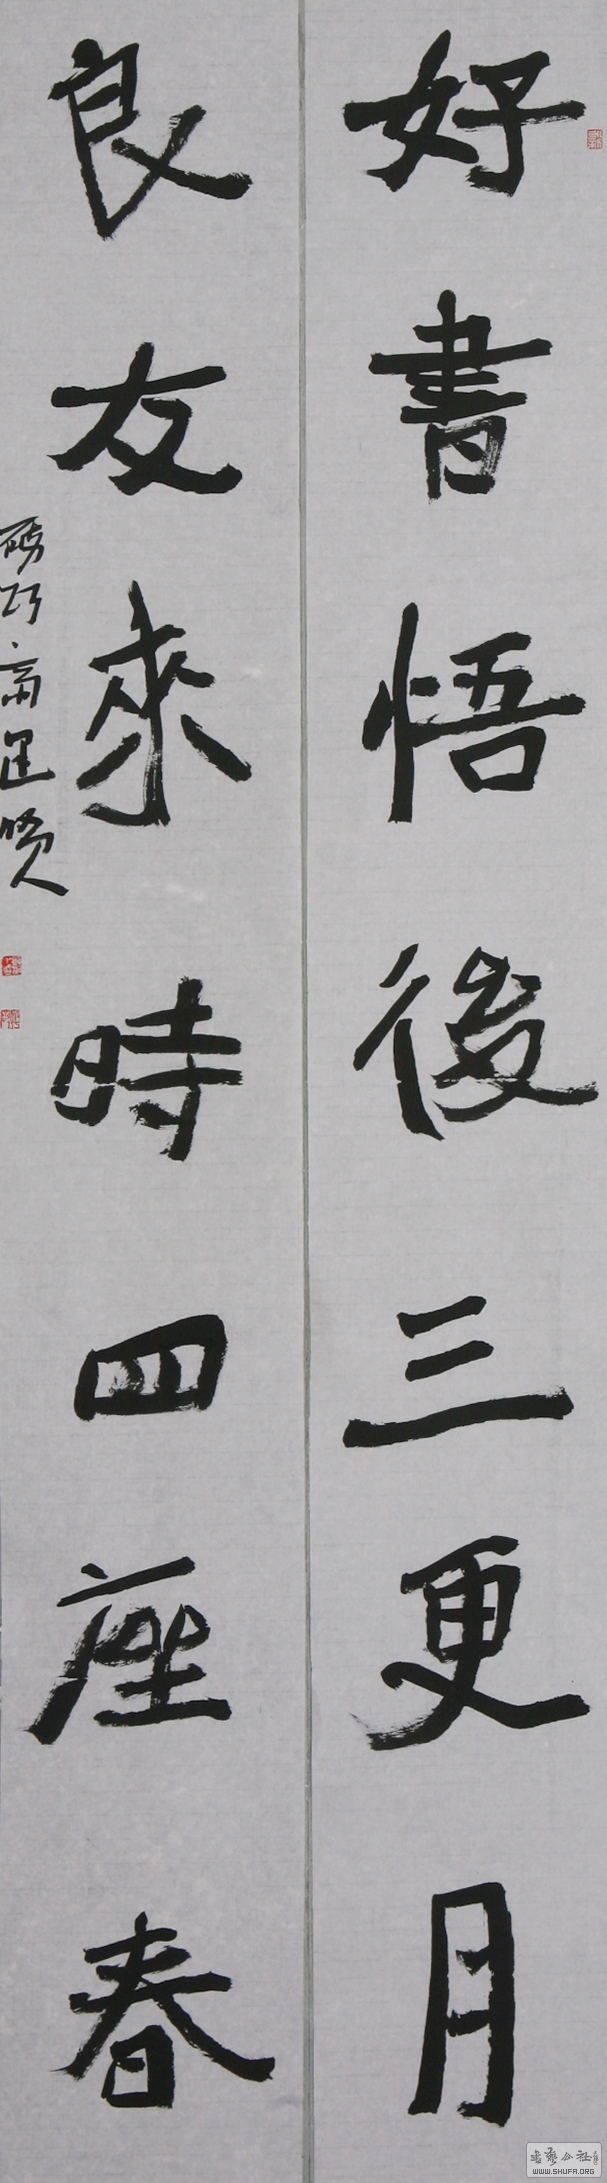 好書悟後三更月
良友來時四座春
書藝公社
WWW.SHUFA.ORG